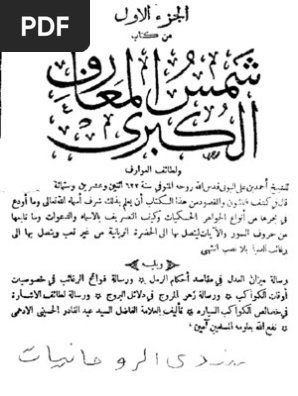 PDF
الجزء الاول
من كتاب
شمس المعارف
الكبرى
ولطائف العوارف
للشيخ أحمد بن على البونى قدس الله روحه المتوفى سنة ٦٢٢ اثنين وعشرين وستمائة
قال فى كشف الظنون والمقصود من هذا الكتاب أن يعلم بذلك شرف أسماء الله تعالى وما أودع
فى بحرها من أنواع الجواهر الحكميات وكيف التصريف بالأسماء والدعوات وما تابعها
من حروف السور والآيات ليتصل بها الى الحضرة الربانية من غير تعب ويتصل بها الى
رغائب الدنيا بلا نصب انتهى
ويليه
رسالة ميزان العدل فى مقاصد أحكام الرمل ورسالة فواتح الرغائب فى خصوصيات
أوقات الكواكب ورسالة زهر المروج فى دلائل البروج ورسالة لطائف الاشارة
فى خصائص الكواكب السيارة تأليف العلامة الفاضل السيد عبد القادر الحسينى الادهمى
نفع الله بعلومه المسلمين آمين
الروحانيات